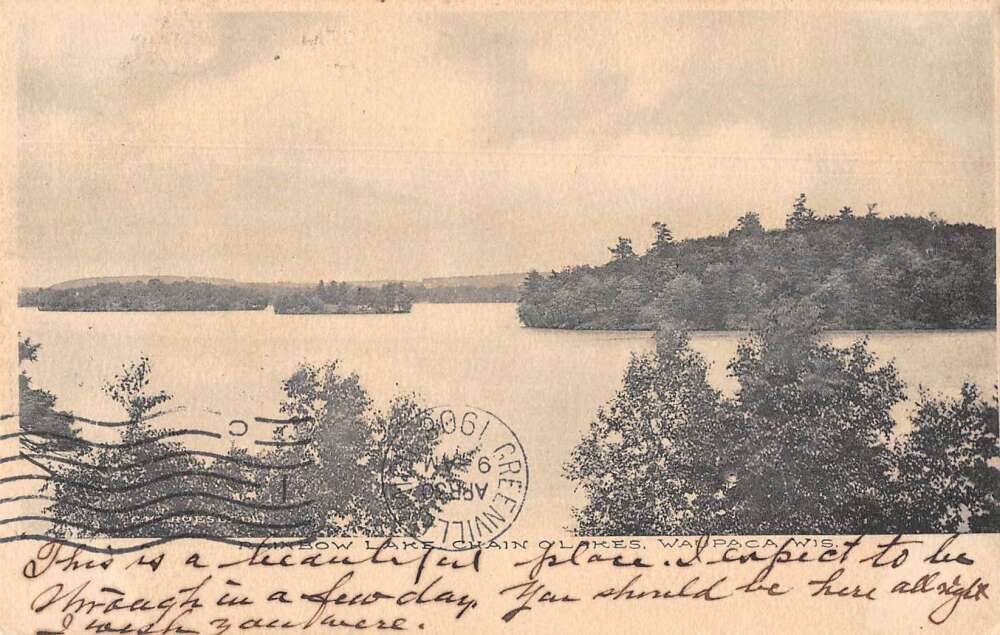 GREENVILL
APR 30
9 AM
1906
RAINBOW LAKE, CHAIN O'LAKES, WAUPACA, WIS.
This is a beautiful place. I expect to be
through in a few day. You should be here all right
I wish you were.